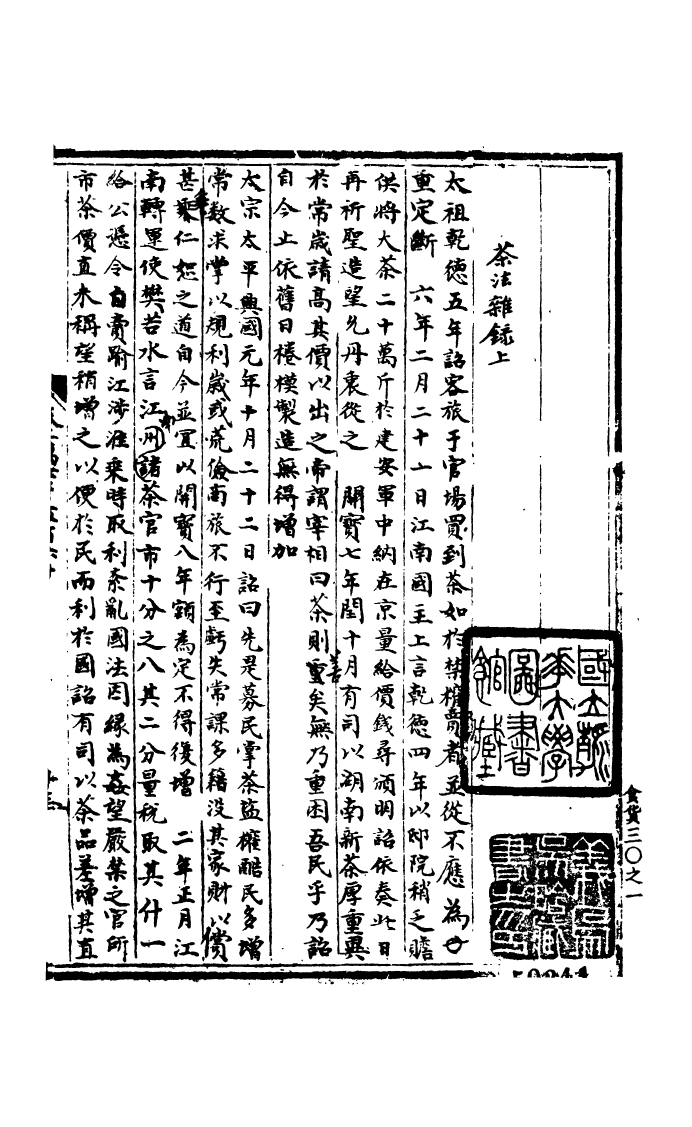 茶法雜錄上
太祖乾德五年詔客旅于官場買到茶如於禁榷并從不應為
重定斷　六年二月二十一日江南國主上言乾德四年以邸院稍乏贍
供將大茶二十萬斤於建安軍中納在京量給價錢尋頒明詔依奏此日
再祈聖造望允丹衷從之　開寶七年閏十月有司以湖南新茶厚重異
於常歲請高其價以出之帝謂宰相曰茶則善矣無乃重困吾民乎乃詔
自今上依舊日棬模製造無得增加
太宗太平興國元年十月二十二日詔曰先是募民掌茶鹽榷酤民多增
常數求掌以規利歲或荒儉商旅不行至虧失常課多籍沒其家財以償
甚乖仁恕之道自今並宜以開寶八年額為定不得復增　二年正月江
南轉運使樊若水言江州諸茶官市十分之八其二分量稅取其什一
給公憑令自賣踰江涉淮乘時取利紊亂國法因緣為姦望嚴禁之官所
市茶價直未稱望稍增之以便於民而利於國詔有司以茶品差增其直
國立
華大學
圖書
館藏
食貨三〇之一